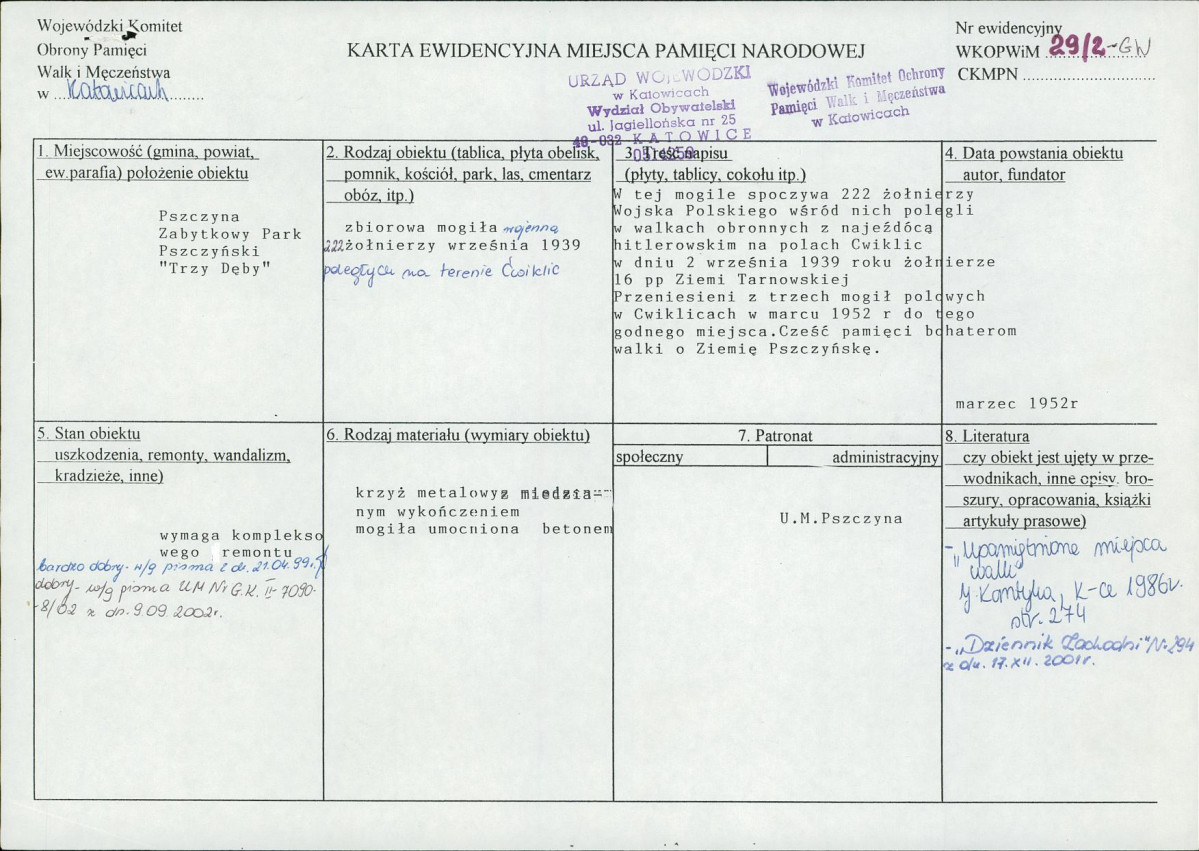 Wojewódzki Komitet
Obrony Pamięci
Walk i Męczeństwa
w ...Katowicach........
KARTA EWIDENCYJNA MIEJSCA PAMIĘCI NARODOWEJ
URZĄD WOJEWODZKI
w Katowicach
Wydział Obywatelski
ul. Jagiellońska nr 25
40-032 KATOWICE
Wojewódzki Komitet Ochrony
Pamięci Walk i Męczeństwa
w Katowicach
Nr ewidencyjny
WKOPWiM 29/2-GW
CKMPN ............................
1. Miejscowość (gmina, powiat,
ew.parafia) położenie obiektu
Pszczyna
Zabytkowy Park
Pszczyński
"Trzy Dęby"
2. Rodzaj obiektu (tablica, płyta obelisk,
pomnik, kościół, park, las, cmentarz
obóz, itp.)
zbiorowa mogiła wojenna
222 żołnierzy września 1939
poległych na terenie Ćwiklic
3. Treść napisu
(płyty, tablicy, cokołu itp.)
W tej mogile spoczywa 222 żołnierzy
Wojska Polskiego wśród nich polegli
w walkach obronnych z najeźdócą
hitlerowskim na polach Cwiklic
w dniu 2 września 1939 roku żołnierze
16 pp Ziemi Tarnowskiej
Przeniesieni z trzech mogił polowych
w Cwiklicach w marcu 1952 r do tego
godnego miejsca.Cześć pamięci bohaterom
walki o Ziemię Pszczyńskę.
4. Data powstania obiektu
autor, fundator
marzec 1952r
5. Stan obiektu
uszkodzenia, remonty, wandalizm,
kradzieże, inne)
wymaga komplekso
wego remontu
bardzo dobry - w/g pisma z dn. 21.04.99r.
dobry - w/g pisma UM Nr G.K. II-7090-
-8/02 z dn. 9.09.2002r.
6. Rodzaj materiału (wymiary obiektu)
krzyż metalowyz miedzia-
nym wykończeniem
mogiła umocniona betonem
7. Patronat
społeczny
administracyjny
U.M.Pszczyna
8. Literatura
czy obiekt jest ujęty w prze-
wodnikach, inne opisy. bro-
szury, opracowania, książki
artykuły prasowe)
- „Upamiętnione miejsca
walk"
J. Kantyka, K-ce 1986r.
str. 274
- „Dziennik Zachodni" Nr 294
z dn. 17.XII.2001r.